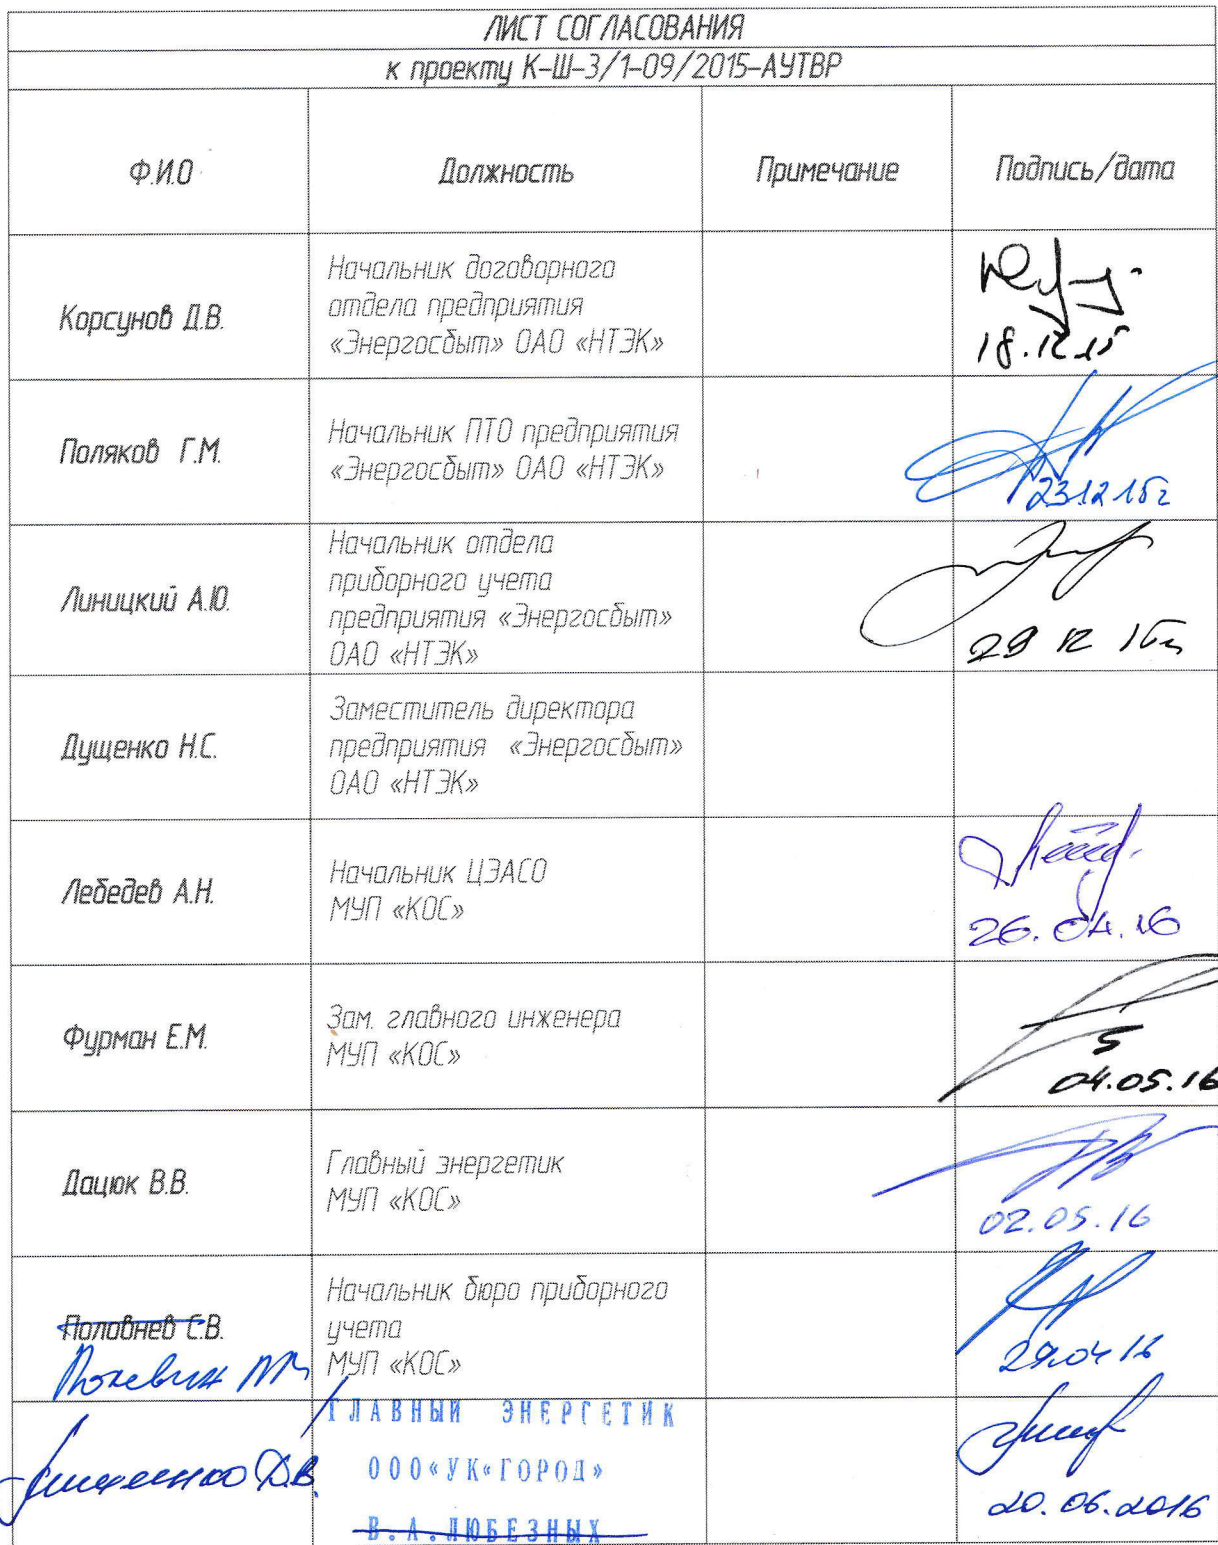 ЛИСТ СОГЛАСОВАНИЯ
к проекту К-Ш-3/1-09/2015-АУТВР
Ф.И.О
Должность
Примечание
Подпись/дата
Корсунов Д.В.
Начальник договорного
отдела предприятия
«Энергосбыт» ОАО «НТЭК»
18.12.15
Поляков Г.М.
Начальник ПТО предприятия
«Энергосбыт» ОАО «НТЭК»
23.12.15г
Линицкий А.Ю.
Начальник отдела
приборного учета
предприятия «Энергосбыт»
ОАО «НТЭК»
29 12 15г
Дущенко Н.С.
Заместитель директора
предприятия «Энергосбыт»
ОАО «НТЭК»
Лебедев А.Н.
Начальник ЦЭАСО
МУП «КОС»
26.04.16
Фурман Е.М.
Зам. главного инженера
МУП «КОС»
04.05.16
Дацюк В.В.
Главный энергетик
МУП «КОС»
02.05.16
Половнев С.В.
Начальник бюро приборного
учета
МУП «КОС»
29.04 16
Д.В.
ГЛАВНЫЙ ЭНЕРГЕТИК
ООО«УК«ГОРОД»
В.А.ЛЮБЕЗНЫХ
20.06.2016